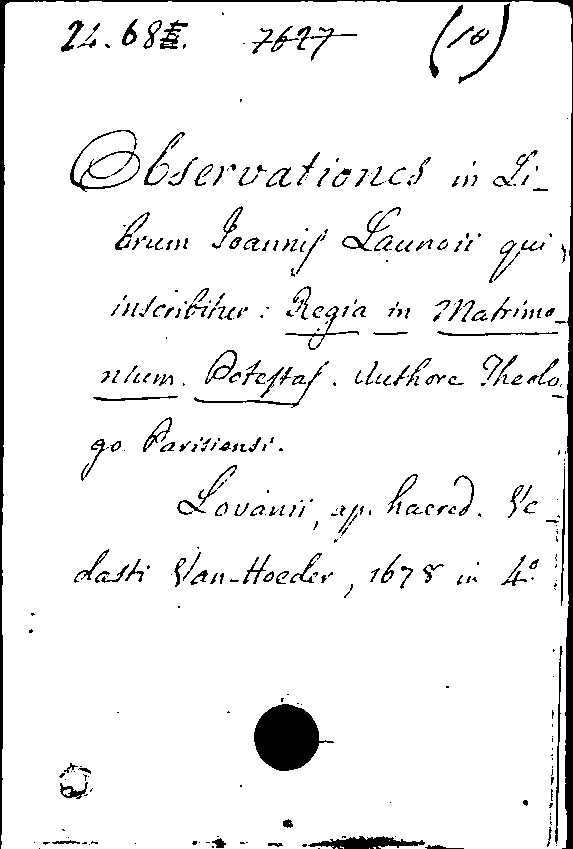 24.68E. 7627 (10)
Observationes in Li-
brum Joannis Launoii qui
inscribitur: Regia in Matrimo-
nium. Potestas. Authore Theolo-
go Parisiensi.
Lovanii, ap. haered. Ve-
dasti Van-Hoeder, 1678 in 4º